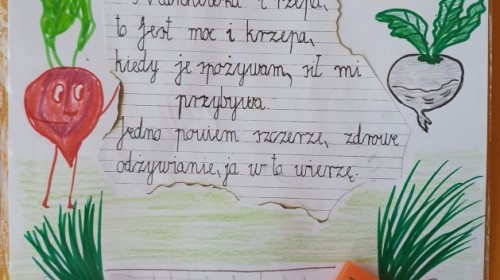 i rzepa,
to jest moc i krzepa,
kiedy je spożywam, sił mi
przybywa.
Jedno powiem szczerze, zdrowe
odżywianie, ja w to wierzę.